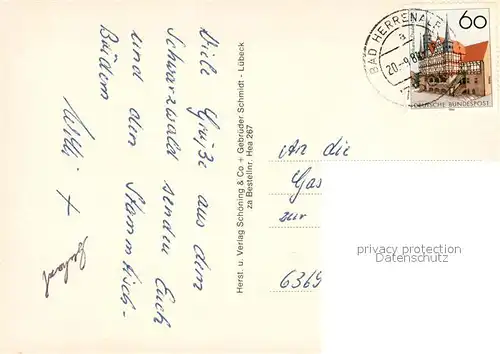 Viele Grüße aus dem
Schwarzwald senden Euch
und den Stammtisch-
Brüdern
Willi +
Herst. u. Verlag Schöning & Co + Gebrüder Schmidt - Lübeck
za Bestellnr. Hea 267
BAD HERRENALB
a
20.-9.84
60
DEUTSCHE BUNDESPOST
An die
Gas
zur
6369
privacy protection
for Veikl